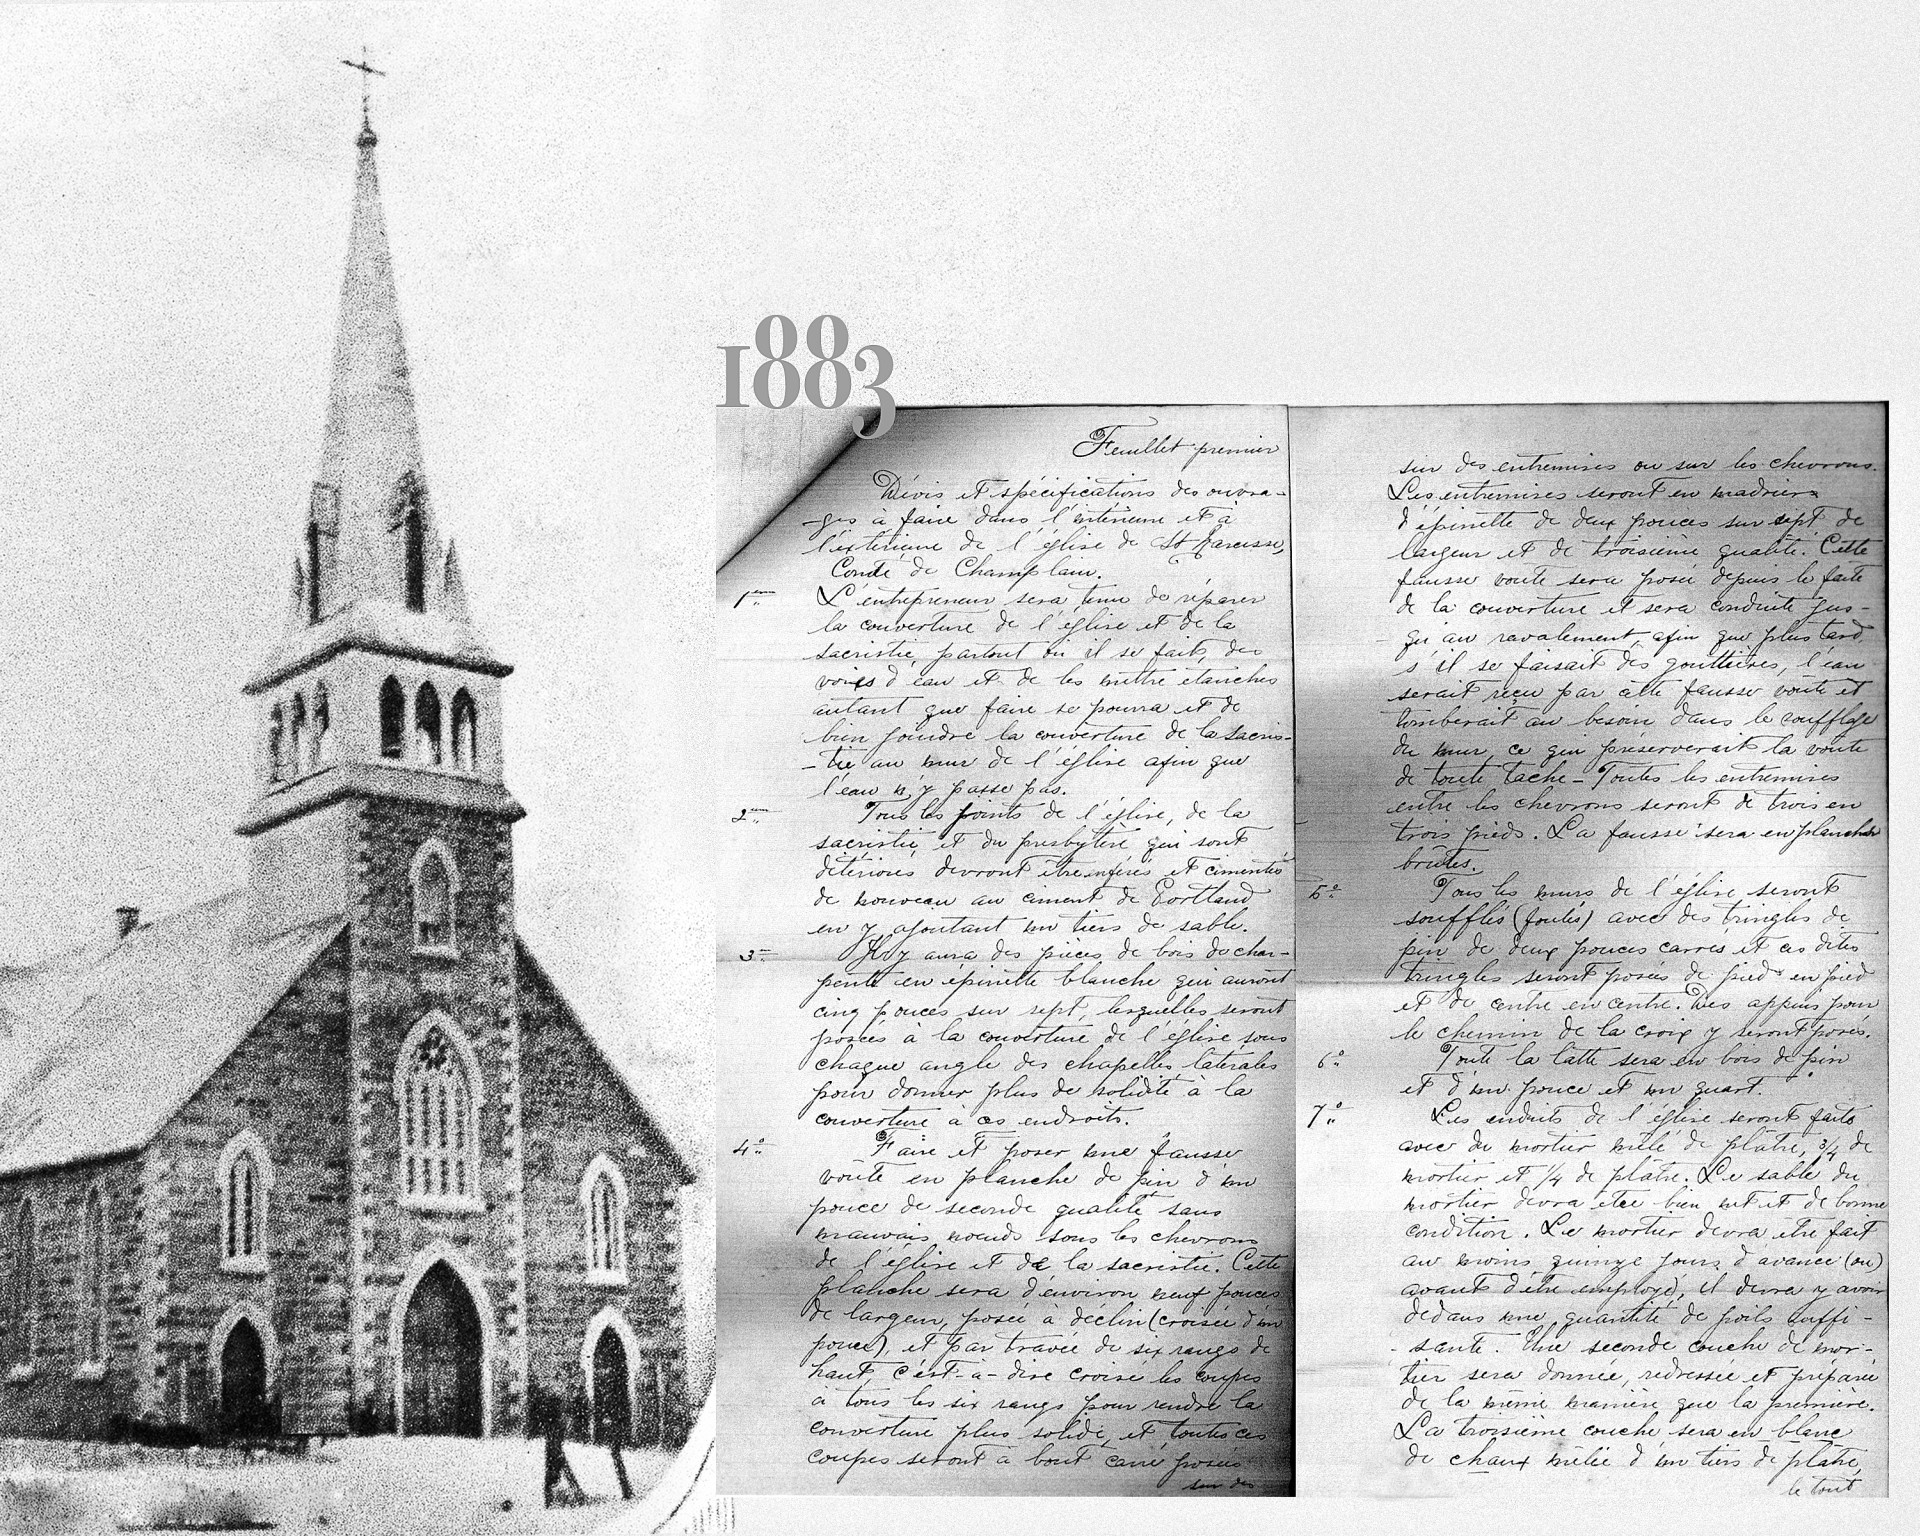 1883
Feuillet premier
Dévis et spécifications des ouvra-
-ges à faire dans l'intérieure et à
l'extérieure de l'église de St Narcisse,
Comté de Champlain.
1ent L'entrepreneur sera tenu de réparer
la couverture de l'église et de la
sacristie, partout où il se fait, des
voies d'eau et de les mettre étanches
autant que faire se pourra et de
bien joindre la couverture de la sacris-
-tie au mur de l'église afin que
l'eau n'y passe pas.
2ent Tous les joints de l'église, de la
sacristie et du presbytère qui sont
détériorés devront être et cimentés
de nouveau au ciment de Portland
en y ajoutant un tiers de sable.
3° Il y aura des pièces de bois de char-
pente en épinette blanche qui auront
cinq pouces sur sept, lesquelles seront
posées à la couverture de l'église sous
chaque angle des chapelles latérales
pour donner plus de solidité à la
couverture à ces endroits.
4° Faire et poser une fausse
voûte en planche de pin d'un
pouce de seconde qualité sans
mauvais noeuds sous les chevrons
de l'église et de la sacristie. Cette
planche sera d'environ neuf pouces
de largeur, posée à déclin (croisée d'un
pouce), et par travée de six rangs de
haut, c'est-à-dire croisé les coupes
à tous les six rangs pour rendre la
couverture plus solide, et toutes ces
coupes seront à bout carré posées
sur des
sur des entremises ou sur les chevrons.
Les entremises seront en madriers
d'épinette de deux pouces sur sept de
largeur et de troisième qualité. Cette
fausse voute sera posée depuis le faîte
de la couverture et sera conduite jus-
-qu'au ravalement, afin que plus tard,
s'il se faisait des gouttières, l'eau
serait reçu par cette fausse voûte et
tomberait au besoin dans le soufflage
du mur, ce qui préserverait la voûte
de toute tache - Toutes les entremises
entre les chevrons seront de trois en
trois pieds. La fausse sera en planches
brutes.
5° Tous les murs de l'église seront
soufflés (foulés) avec des tringles de
pin de deux pouces carrés et ces dites
tringles seront posées de pied en pied
et de centre en centre. Des appuis pour
le chemin de la croix y seront posés.
6° Toute la latte sera en bois de pin
et d'un pouce et un quart.
7° Les enduits de l'église seront faits
avec du mortier mêlé de plâtre, 3/4 de
mortier et 1/4 de plâtre. Le sable du
mortier devra être bien net et de bonne
condition. Le mortier devra être fait
au moins quinze jours d'avance (ou)
avant d'être employé, il devra y avoir
dedans une quantité de poils suffi-
-sante. Une seconde couche de mor-
tier sera donnée, redressée et préparée
de la même manière que la première.
La troisième couche sera en blanc
de chaux mêlée d'un tiers de plâtre,
le tout